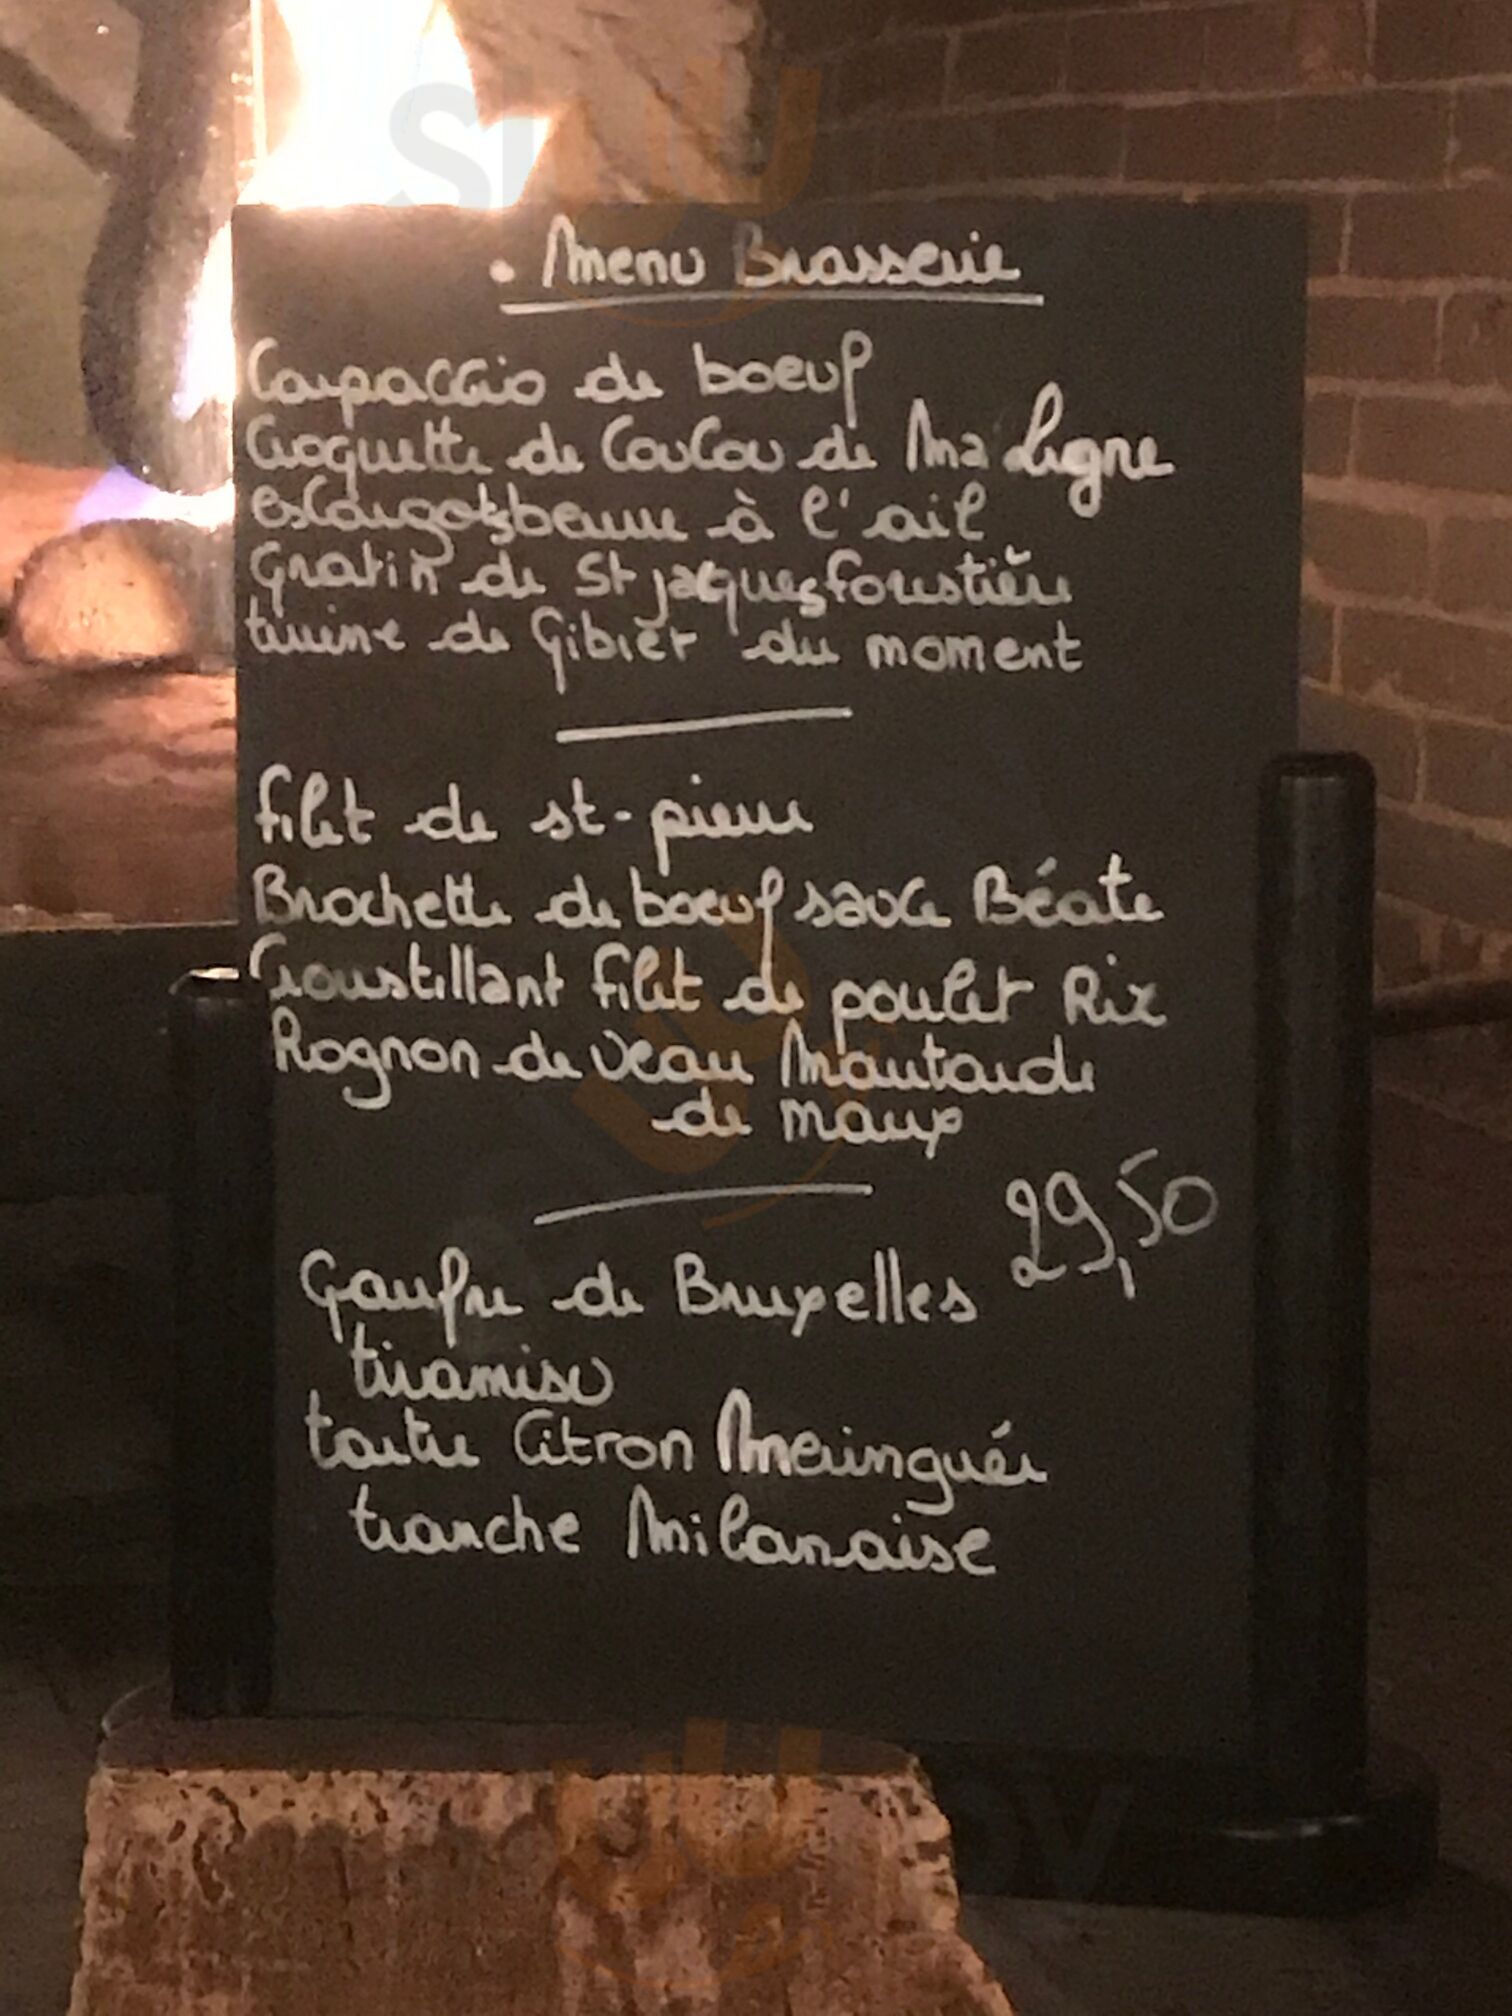 . Menu Brasserie
Carpaccio de boeuf
Croquette de Coucou de Ma Ligne
escargots beurre à l'ail
Gratin de St jaques forestière
terrine de Gibier du moment
filet de st-pierre
Brochette de boeuf sauce Béate
Croustillant filet de poulet Rix
Rognon de veau Moutarde
de maux
29,50
Gaufre de Bruxelles
tiramisu
tarte Citron Meringuée
tranche Milanaise